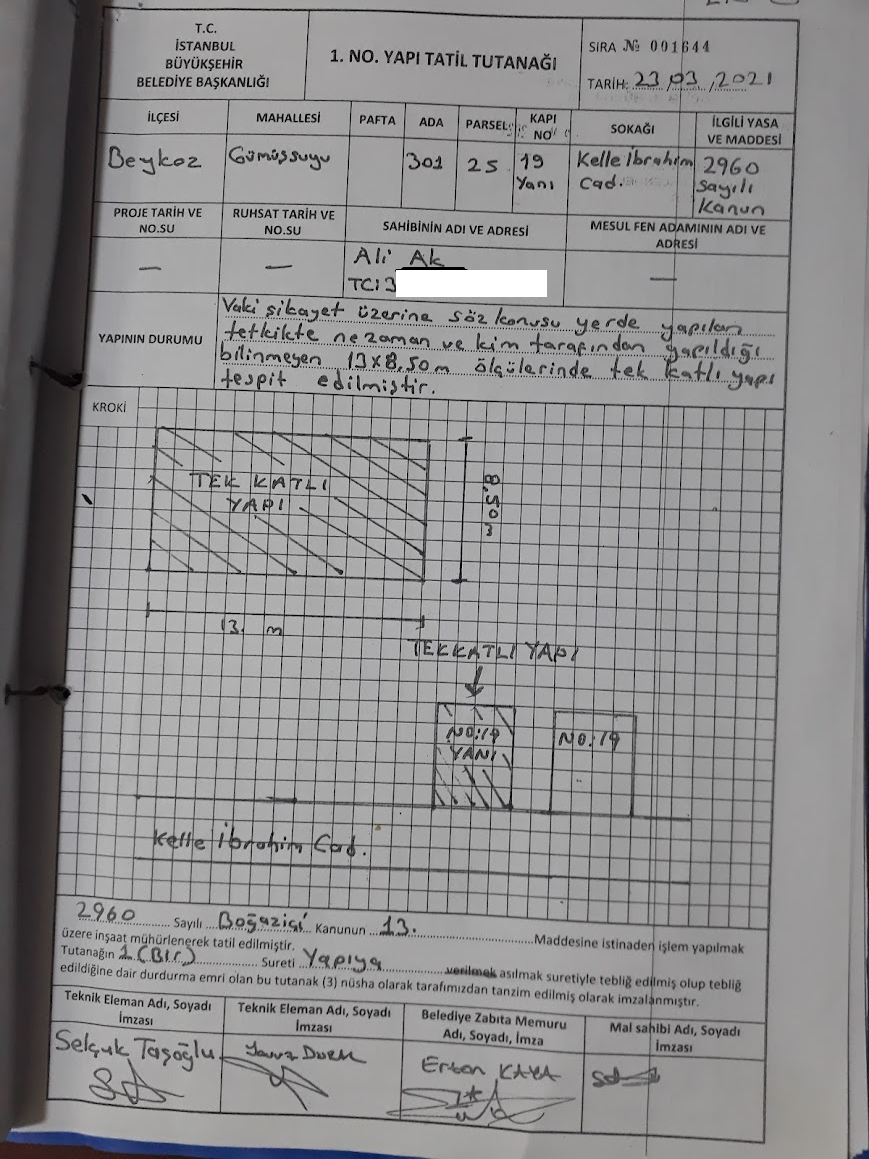 T.C.
İSTANBUL
BÜYÜKŞEHİR
BELEDİYE BAŞKANLIĞI
1. NO. YAPI TATİL TUTANAĞI
SIRA № 001644
TARİH: 23/03/2021
İLÇESİ
MAHALLESİ
PAFTA
ADA
PARSEL
KAPI
NO
SOKAĞI
İLGİLİ YASA
VE MADDESİ
Beykoz
Gümüşsuyu
301
25
19
Yanı
Kelle İbrahim
Cad.
2960
Sayılı
Kanun
PROJE TARİH VE
NO.SU
RUHSAT TARİH VE
NO.SU
SAHİBİNİN ADI VE ADRESİ
MESUL FEN ADAMININ ADI VE
ADRESİ
—
—
Ali Ak
TC: 3
—
YAPININ DURUMU
Vaki şikayet üzerine söz konusu yerde yapılan
tetkikte ne zaman ve kim tarafından yapıldığı
bilinmeyen 13x8,50m ölçülerinde tek katlı yapı
tespit edilmiştir.
KROKİ
TEK KATLI
YAPI
8,50
13. m
TEK KATLI YAPI
NO:19
YANI
NO:19
Kelle İbrahim Cad.
2960 Sayılı Boğaziçi Kanunun 13. Maddesine istinaden işlem yapılmak
üzere inşaat mühürlenerek tatil edilmiştir.
Tutanağın 1 (Bir) Sureti Yapıya verilmek asılmak suretiyle tebliğ edilmiş olup tebliğ
edildiğine dair durdurma emri olan bu tutanak (3) nüsha olarak tarafımızdan tanzim edilmiş olarak imzalanmıştır.
Teknik Eleman Adı, Soyadı
İmzası
Teknik Eleman Adı, Soyadı
İmzası
Belediye Zabıta Memuru
Adı, Soyadı, İmza
Mal sahibi Adı, Soyadı
İmzası
Selçuk Taşoğlu
Ertan KAYA